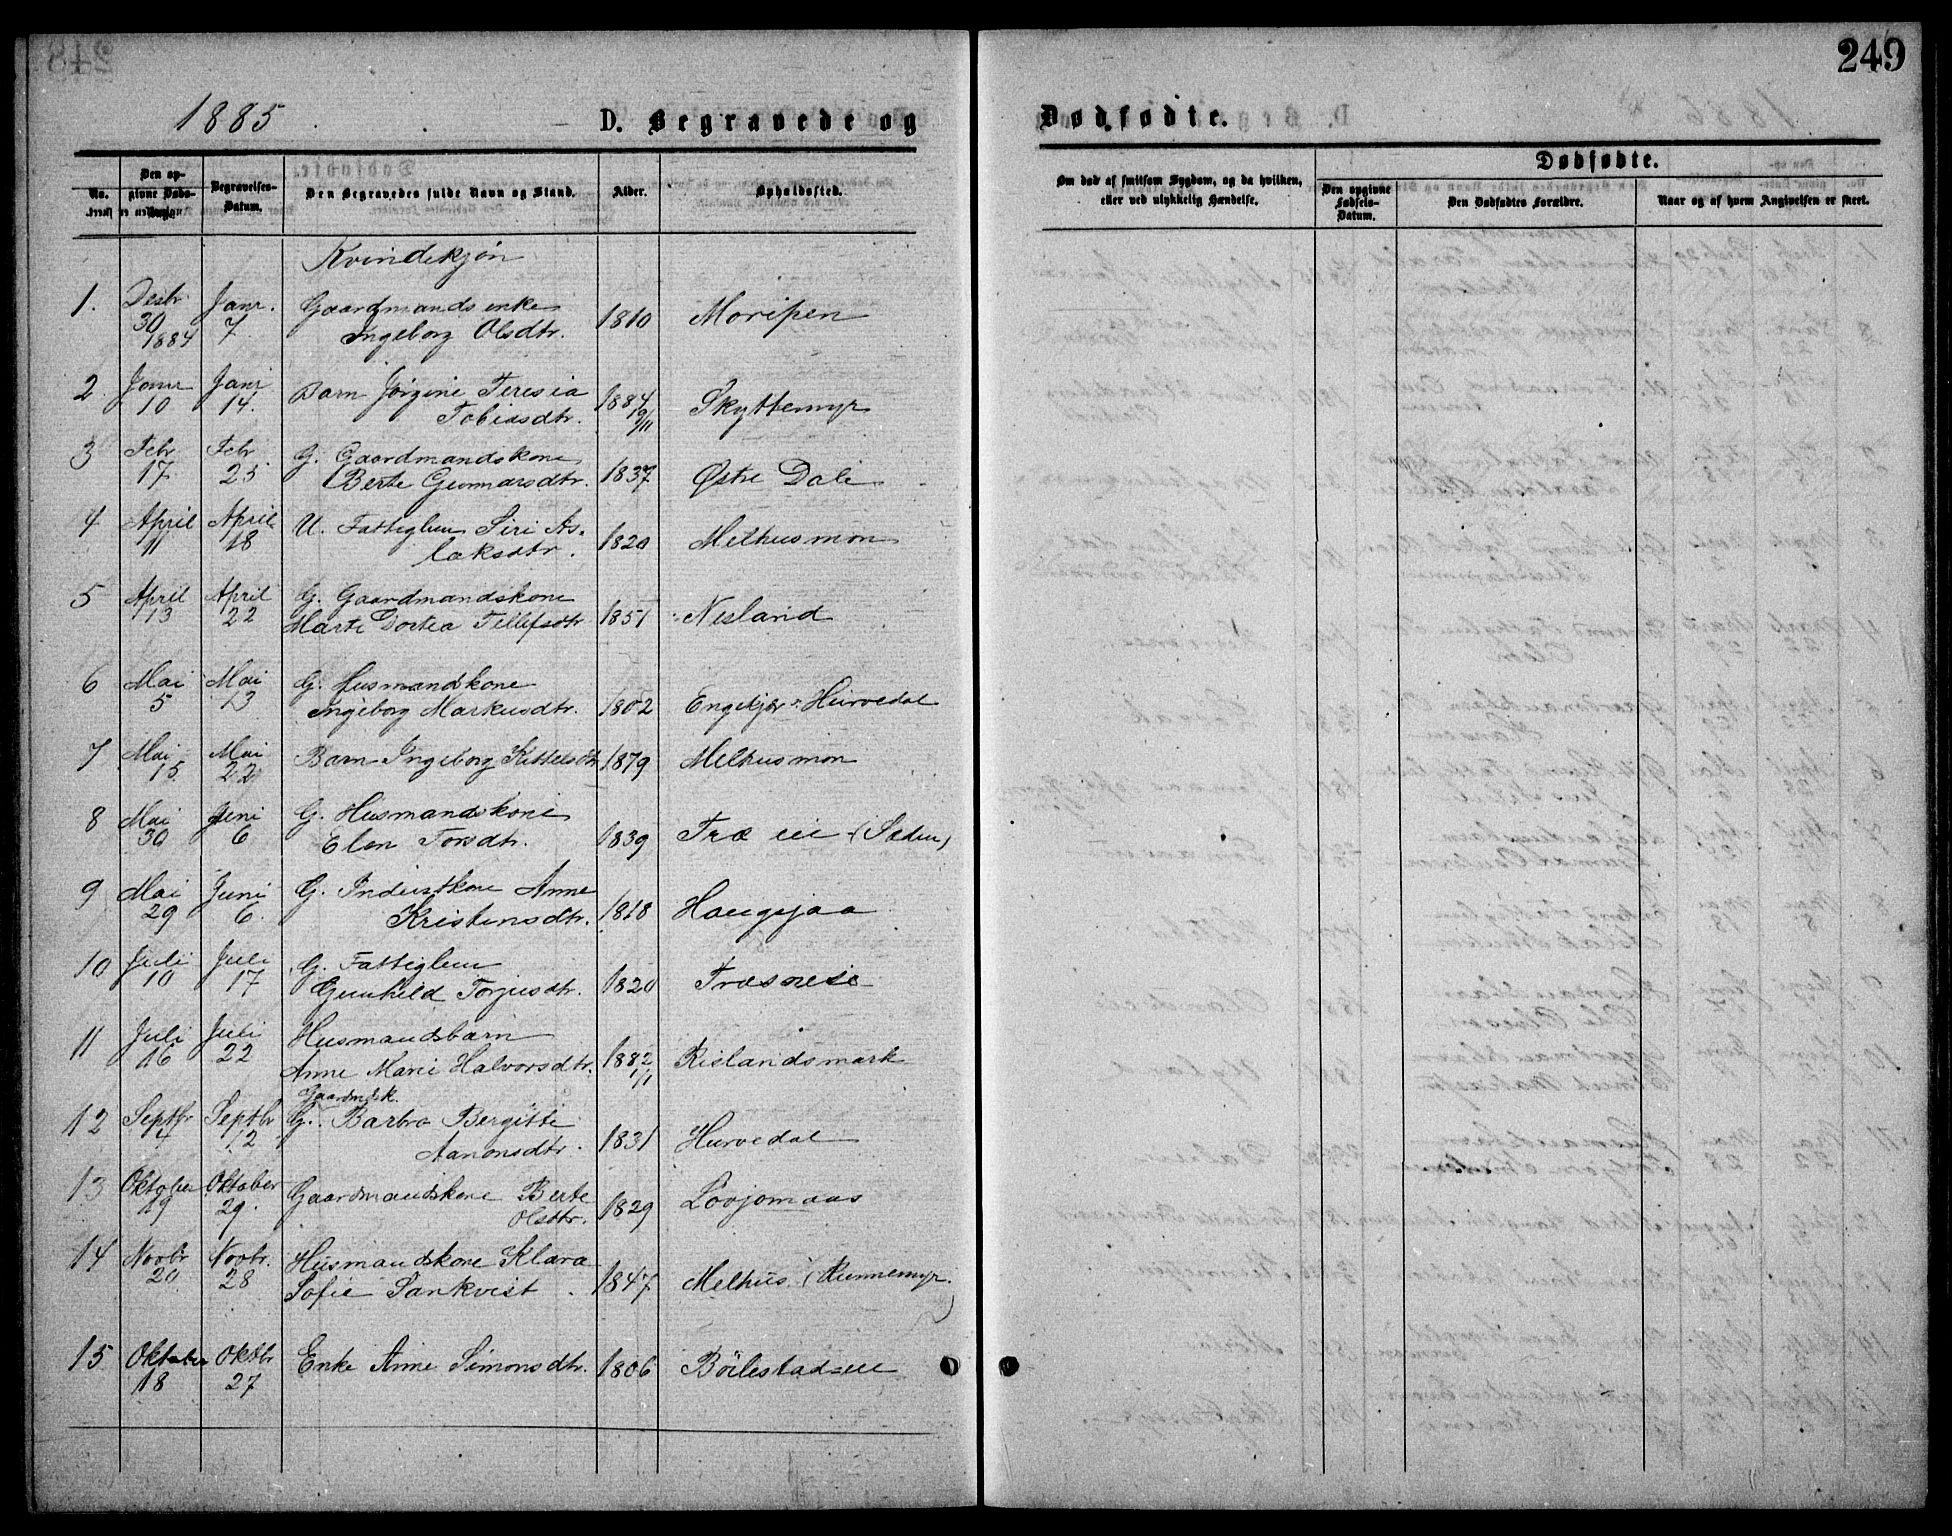 249
1885
D. Begravede og
Dødfødte.
No.
Den opgivne Døds-
Begravelses-
Datum.
Den Begravedes fulde Navn og Stand.
Alder.
Opholdssted.
Om død af smitsom Sygdom, og da hvilken,
eller ved ulykkelig Hændelse.
Dødfødte.
Den opgivne
Fødsels-
Datum.
Den Dødfødtes Forældre.
Naar og af hvem Angivelsen er skeet.
Kvindekjøn
1. Desbr 30 1884 Janr. 7 Gaardmandsenke
Ingeborg Olsdtr. 1810 Moripen
2. Janr 10 Janr 14. Barn Jörgine Teresia
Tobiasdtr. 1884 19/11 Skyttemyr
3 Febr 17 Febr 25 G. Gaardmandskone
Berte Gunnarsdtr. 1837 Østre Dale
4 April 11 April 18 U. Fattiglem Siri As-
laksdtr. 1820 Melhusmon
5 April 13 April 22 G. Gaardmandskone
Marte Dortea Tellefsdtr 1851 Nesland
6 Mai 5 Mai 13 G. Husmandskone
Ingeborg Markusdtr. 1802 Engekjær Hurvedal
7 Mai 15 Mai 22 Barn Ingeborg Kittelsdtr 1879 Melhusmon
8 Mai 30 Juni 6 G. Husmandskone
Elen Torsdtr. 1839 Træ eie
9 Mai 29 Juni 6. G. Inderstkone Anne
Kristensdtr. 1818 Haugsjaa
10 Juli 10 Juli 17 G. Fattiglem
Gunhild Torjusdtr. 1820 Træsnese
11 Juli 16 Juli 22 Husmandsbarn
Anne Marie Halvorsdtr. 1882 1/1 Rislandsmark
Gaardmdsk.
12 Septbr 4 Septbr 12 G. Barbro Bergitte
Aanonsdtr. 1831 Hurvedal
13 Oktober 19 Oktober 29. Gaardmandskone Berte
Olsdtr. 1829 Lovjomaas
14 Novbr 20 Novbr. 28 Husmandskone Klara
Sofie Tankvist 1847 Melhus (Runnemyr.)
15 Oktober 18 Oktbr 27 Enke Anne Simonsdtr. 1806 Böilestad-eie